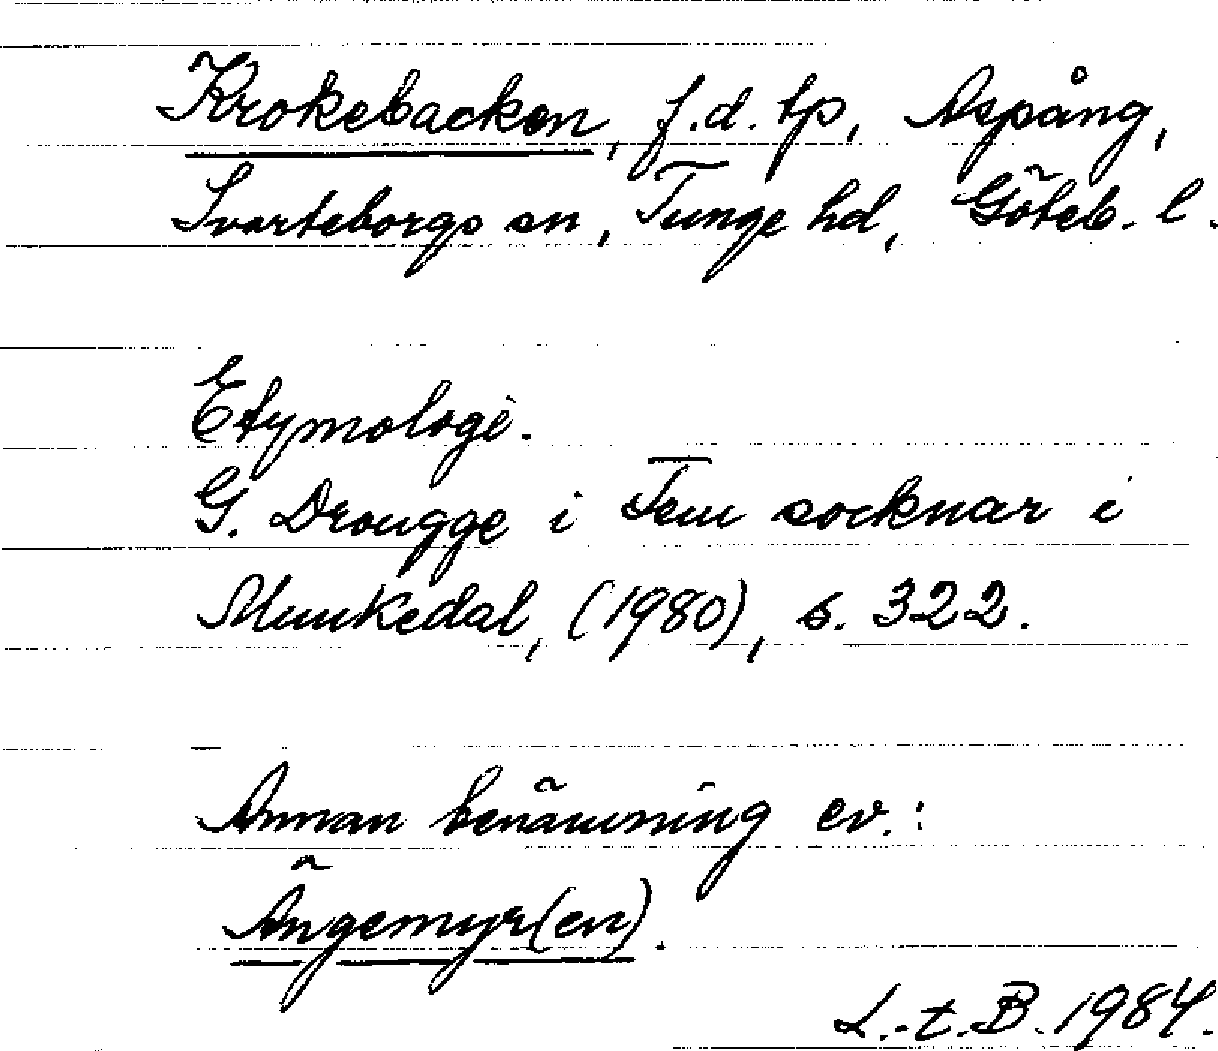 Krokebacken, f.d. tp, Aspång,
Svarteborgs sn, Tunge hd, Göteb. l.
Etymologi.
G. Drougge i Fem socknar i
Munkedal, (1980), s. 322.
Annan benämning ev.:
Ängemyr(en).
L.t.B. 1984.